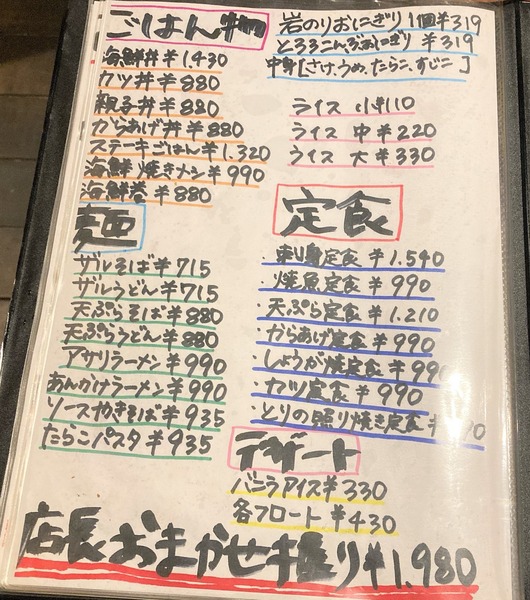 ごはん物
海鮮丼 ¥1,430
カツ丼 ¥880
親子丼 ¥880
からあげ丼 ¥880
ステーキごはん ¥1,320
海鮮焼きメシ ¥990
海鮮巻 ¥880
岩のりおにぎり 1個¥319
とろろこんぶおにぎり ¥319
中身[さけ、うめ、たらこ、すじこ]
ライス 小¥110
ライス 中¥220
ライス 大¥330
麺
ザルそば ¥715
ザルうどん ¥715
天ぷらそば ¥880
天ぷらうどん ¥880
アサリラーメン ¥990
あんかけラーメン ¥990
ソースやきそば ¥935
たらこパスタ ¥935
定食
・刺身定食 ¥1.540
・焼魚定食 ¥990
・天ぷら定食 ¥1.210
・からあげ定食 ¥990
・しょうが焼定食 ¥990
・カツ定食 ¥990
・とりの照り焼き定食 ¥
デザート
バニラアイス ¥330
各フロート ¥430
店長おまかせ握り ¥1,980